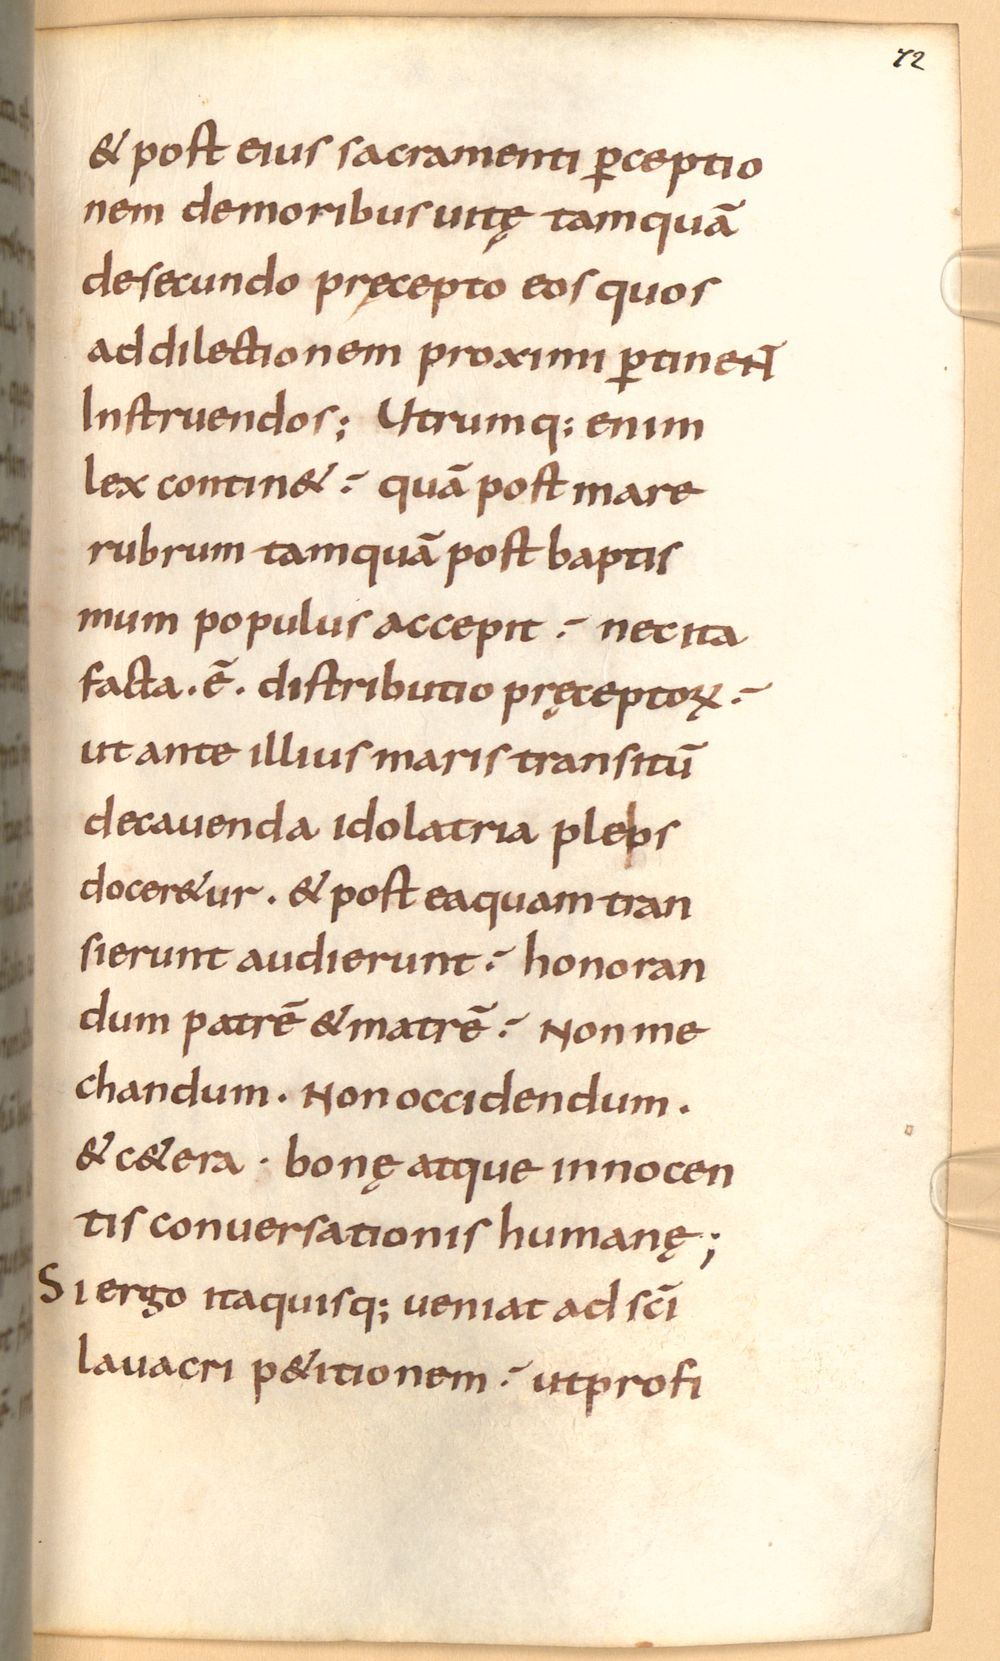 72
& post eius sacramenti ꝑceptio
nem demoribus uitę tamquā
desecundo pręcepto eos quos
addilectionem proximi ꝑtineñ
Instruendos; Utrumq; enim
lex contin& : quā post mare
rubrum tamquā post baptis
mum populus accepit : nec ita
facta . ē . distributio pręceptoꝝ :
ut ante illius maris transitū
decauenda idolatria pleps
docer&ur . & post eaquam tran
sierunt audierunt : honoran
dum patrē & matrē : Non me
chandum . Non occidendum .
& c&era . bonę atque innocen
tis conuersationis humanę ;
Si ergo itaquisq; ueniat ad sc̄i
lauacri p&itionem : utprofi